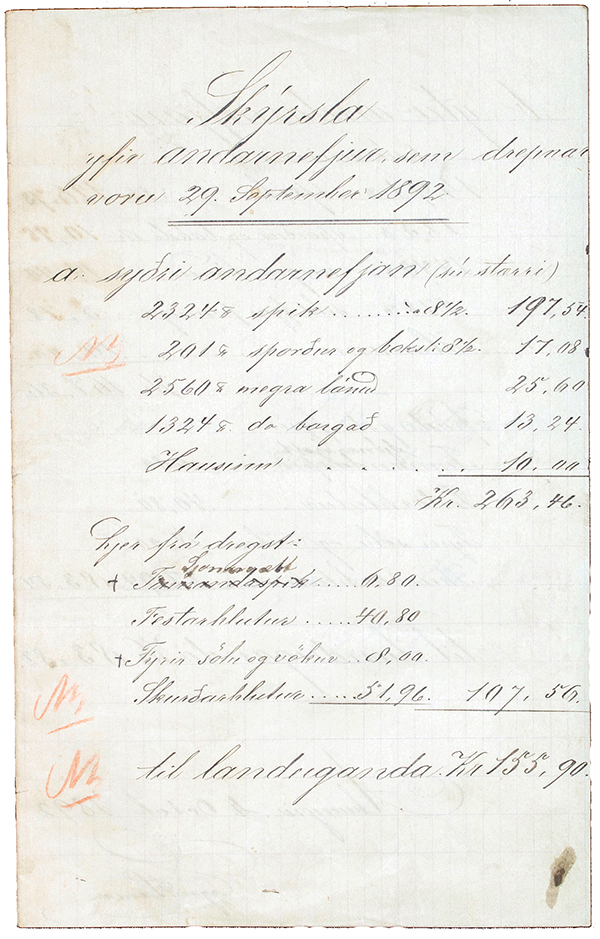 Skýrsla
yfir andarnefjur, sem drepnar
voru 29. September 1892
a. syðri andarnefjan (sú stærri)
2324 ℔ spik ........ a 8½. 197,54
201 ℔ sporður og bæksli 8½. 17,08
2560 ℔ megra lánað 25,60
1324 ℔ do borgað 13,24
Hausinn . . . . . . 10,00
Kr. 263,46.
hjer frá dregst:
+ ... 6,80.
Festarhlutur ..... 40,80
+ Fyrir sölu og vöktun .. 8,00.
Skurðarhlutur ..... 51,96. 107,56
til landeiganda. Kr 155,90.